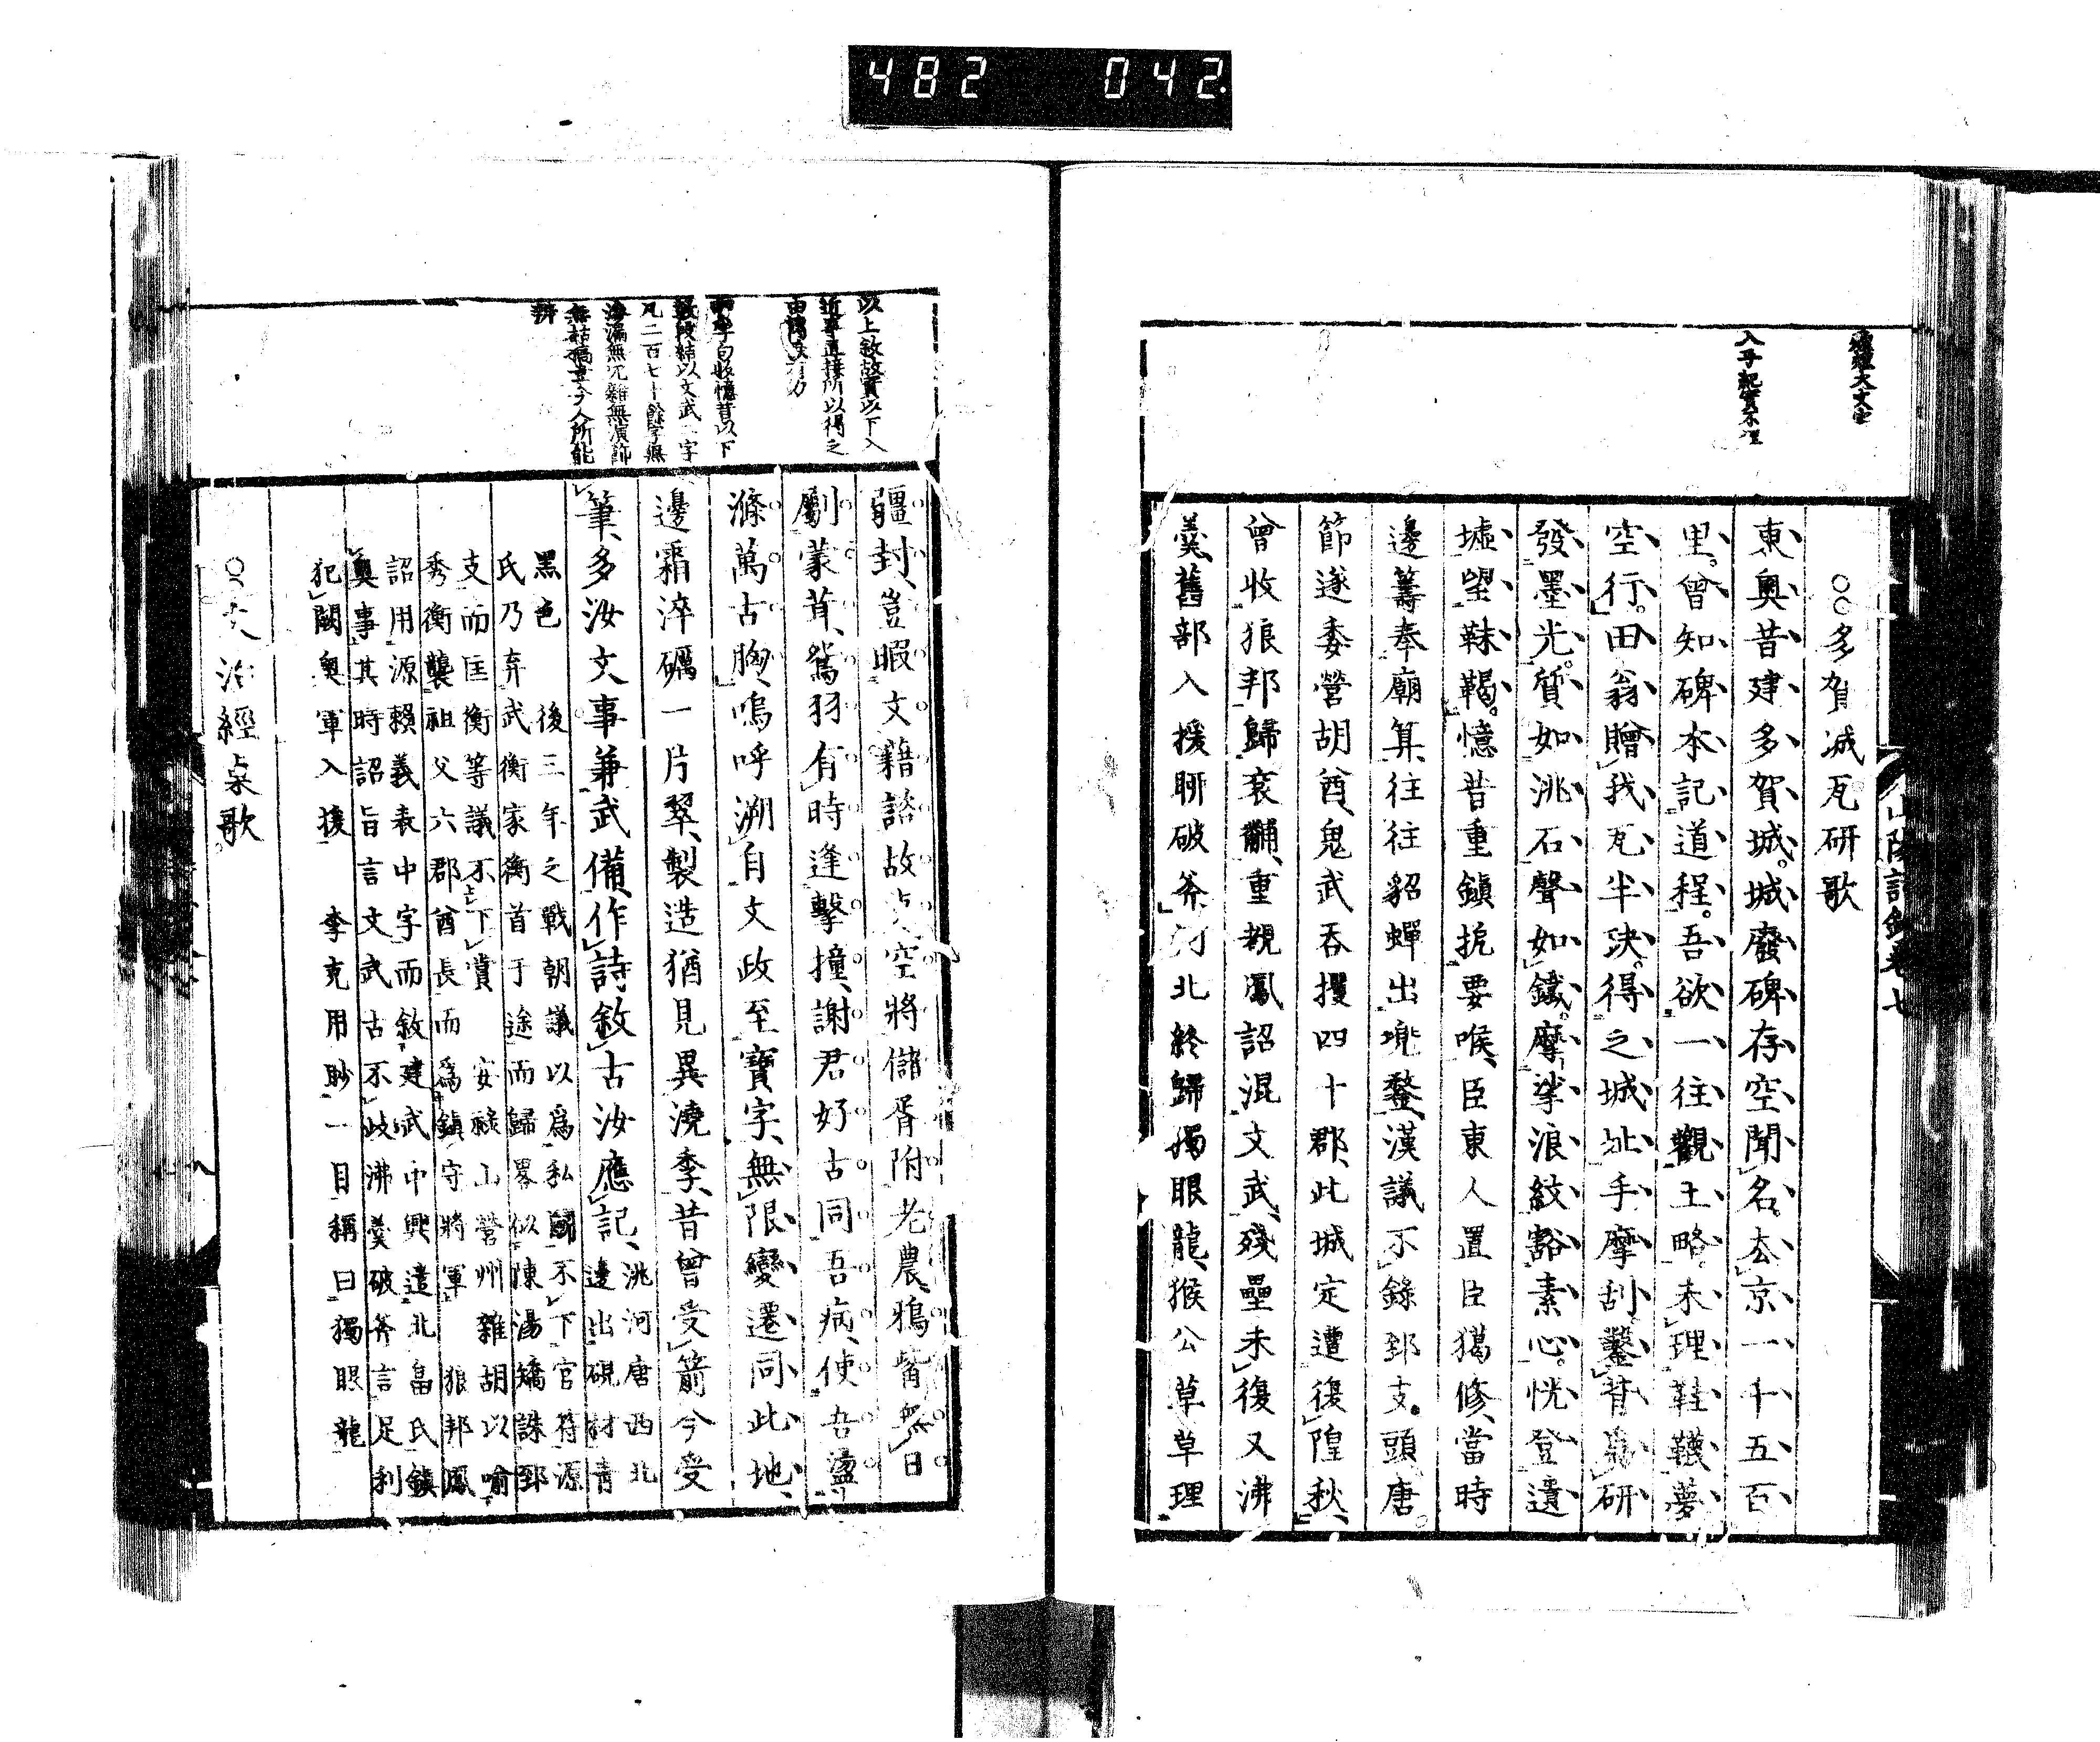 482 042
山陽詩鈔卷七
入手起實不
○○多賀城瓦研歌
東奧昔建多賀城。城廢碑存空聞名。去京一千五百
里。曾知碑本記道程。吾欲一往觀土略。未理鞋韈夢
空行。田翁贈我瓦半玦。得之城址手摩刮。鑿背爲研
發墨光。質如洮石聲如鐵。摩挲浪紋豁素心。恍登遺
墟望靺鞨。憶昔重鎭扼要喉、臣東人置臣獦修、當時
邊籌奉廟算、往往貂蟬出兜鍪、漢議不錄郅支。頭唐。
節遂委營胡酋、鬼武吞攫四十郡、此城定遭復隍秋、
曾收狼邦歸衮黼、重覩鳳詔混文武、殘壘未復又沸
羹、舊部入援聊破斧、河北終歸獨眼龍、猴公草草理
以上敘故實以下入
近事直接所以得之
由
句收憶昔以下
數段結以文武二字
凡二百七十餘字無
滲漏無冗雜無演飾
無枯槁豈今人所能
辨
疆封、豈暇文藉諮故 空將儲胥附老農、鴉觜無日
劚蒙茸、鴛羽有時逢擊撞、謝君好古同吾病、使吾盪
滌萬古胸、嗚呼溯自文政至寶字、無限變遷同此地、
邊霜淬礪一片翠、製造猶見異澆季、昔曾受箭今受
筆、多汝文事兼武備、作詩敘古汝應記、洮河唐西北
邊出硯材青
黑色 後三年之戰朝議以爲私鬪不下官符源
氏乃弃武衡家衡首于途而歸畧似陳湯矯誅郅
支而匡衡等議不下賞 安祿山營州雜胡以喻
秀衡襲祖父六郡酋長而爲鎭守將軍 狼邦鳳
詔用源賴義表中字而敘建武中興遣北畠氏鎭
奧事其時詔旨言文武古不岐沸羹破斧言足利
犯闕奧軍入援 李克用眇一目稱曰獨眼龍
治經 歌